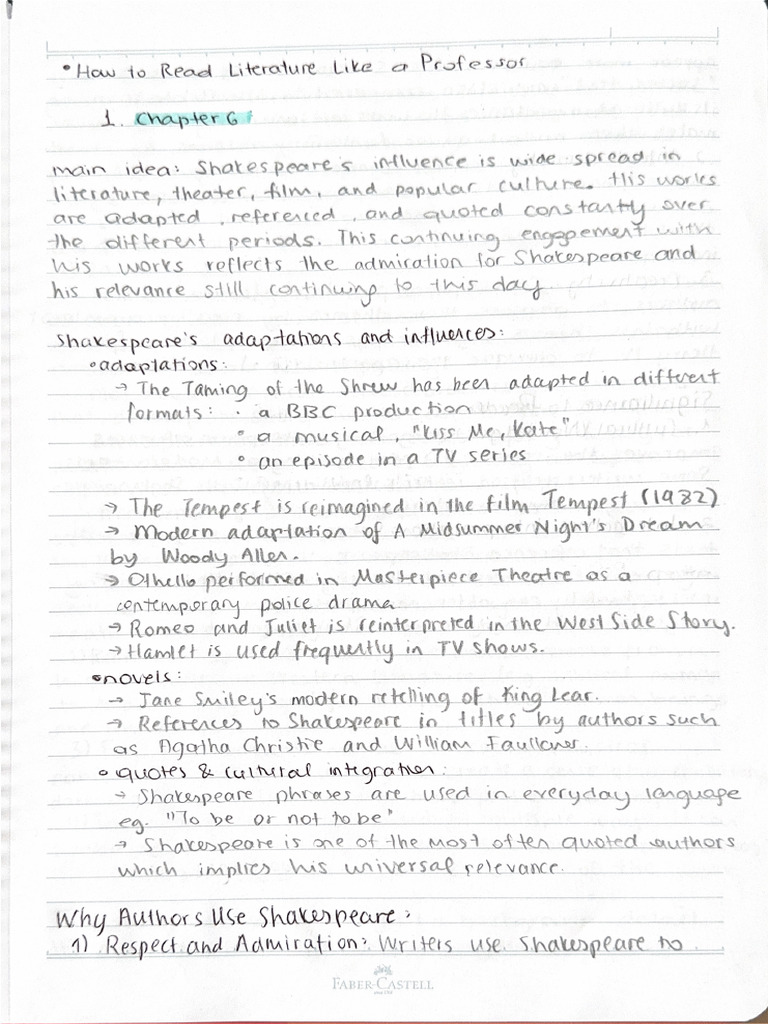 • How to Read Literature Like a Professor
1. Chapter 6
main idea: Shakespeare's influence is wide spread in
literature, theater, film, and popular culture. His works
are adapted, referenced, and quoted constantly over
the different periods. This continuing engagement with
his works reflects the admiration for Shakespeare and
his relevance still continuing to this day.
Shakespeare's adaptations and influences:
• adaptations:
→ The Taming of the Shrew has been adapted in different
formats: • a BBC production
• a musical, "Kiss Me, Kate"
• an episode in a TV series
→ The Tempest is reimagined in the film Tempest (1982)
→ Modern adaptation of A Midsummer Night's Dream
by Woody Allen.
→ Othello performed in Masterpiece Theatre as a
contemporary police drama.
→ Romeo and Juliet is reinterpreted in the West Side Story.
→ Hamlet is used frequently in TV shows.
• novels:
→ Jane Smiley's modern retelling of King Lear.
→ References to Shakespeare in titles by authors such
as Agatha Christie and William Faulkner.
• quotes & cultural integration:
→ Shakespeare phrases are used in everyday language
eg. "To be or not to be"
→ Shakespeare is one of the most often quoted authors
which implies his universal relevance.
Why Authors Use Shakespeare:
1) Respect and Admiration: Writers use Shakespeare to
FABER-CASTELL